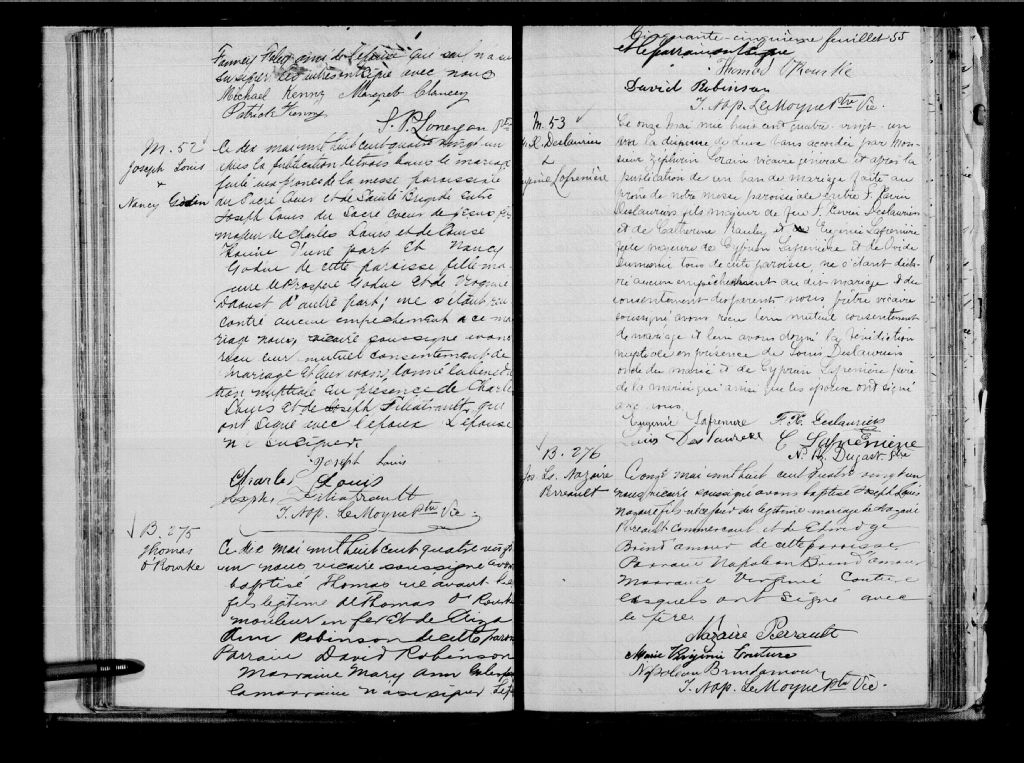 Fanney Foley amie de l'épouse qui
avec nous
Michael Kenny Margret Clancey
Patrick Kenny
S. P. Lonergan Ptre
M. 52
Joseph Louis
+
Nancy Godin
Le dix mai mil huit cent quatre vingt un
après la publication de trois bans de mariage
faite aux prones de la messe paroissiale
du Sacré Coeur et de Sainte Brigide entre
Joseph Louis du Sacré Coeur de Jésus fils
majeur de Charles Louis et de Louise
d'une part et Nancy
Godin de cette paroisse fille ma-
jeure de Prospère Godin et de
Daoust d'autre part; ne s'étant ren
contré aucun empêchement à ce ma
riage nous, vicaire soussigné avons
reçu leur mutuel consentement de
mariage et leur avons donné la bénédic
tion nuptiale en présence de Charles
Louis et de Joseph Filiatrault, qui
ont signé avec l'époux L'épouse
n'a su signer.
Joseph Louis
Charles Louis
Joseph Filiatrault
J. Nap. LeMoyne ptre Vic.
B. 275
Thomas
O'Rourke
Ce dix mai mil huit cent quatre vingt
un nous vicaire soussigné avons
baptisé Thomas né avant hier
fils légitime de Thomas O' Rourke
mouleur en fer et de Eliza
Ann Robinson de cette paroisse
Parrain David Robinson
Marraine Mary Ann
La marraine n'a su signer le père
Cinquante-cinquième feuillet 55
et le parrain ont signé
Thomas O'Rourke
David Robinson
J. Nap. LeMoyne ptre Vic.
M. 53
F. X. Deslauriers
&
Eugénie Lafrenière
Le onze Mai mil huit cent quatre-vingt-un
vu la dispense de deux bans accordée par Mon-
sieur Zéphirin Lorain vicaire général et après la
publication de un ban de mariage faite au
prône de notre messe paroissiale entre F. Xavier
Deslauriers fils majeur de feu F. Xavier Deslauriers
et de Catherine et de Eugénie Lafrenière
fille majeure de Cyprien Lafrenière et de
tous de cette paroisse, ne s'étant décou-
vert aucun empêchement au dit mariage & du
consentement des parents nous prêtre vicaire
soussigné avons reçu leur mutuel consentement
de mariage et leur avons donné la bénédiction
nuptiale en présence de Louis Deslauriers
oncle du marié et de Cyprien Lafrenière père
de la mariée qui ainsi que les époux ont signé
avec nous.
Eugénie Lafreniere F. X. Deslauriers
Louis Deslauriers C. Lafrenière
Dugast Ptre
B. 276
Jos. Ls. Nazaire
Perreault
Le onze mai mil huit cent quatre vingt un
nous vicaire soussigné avons baptisé Joseph Louis
Nazaire fils né légitime mariage de Nazaire
Perreault Commercant et de Edwidge
Brind'amour de cette paroisse
Parrain Napoléon Brind'amour
Marraine Virginie Couture
lesquels ont signé avec
le père.
Nazaire Perrault
Marie Virginie Couture
Napoléon Brindamour
J. Nap. LeMoyne ptre Vic.